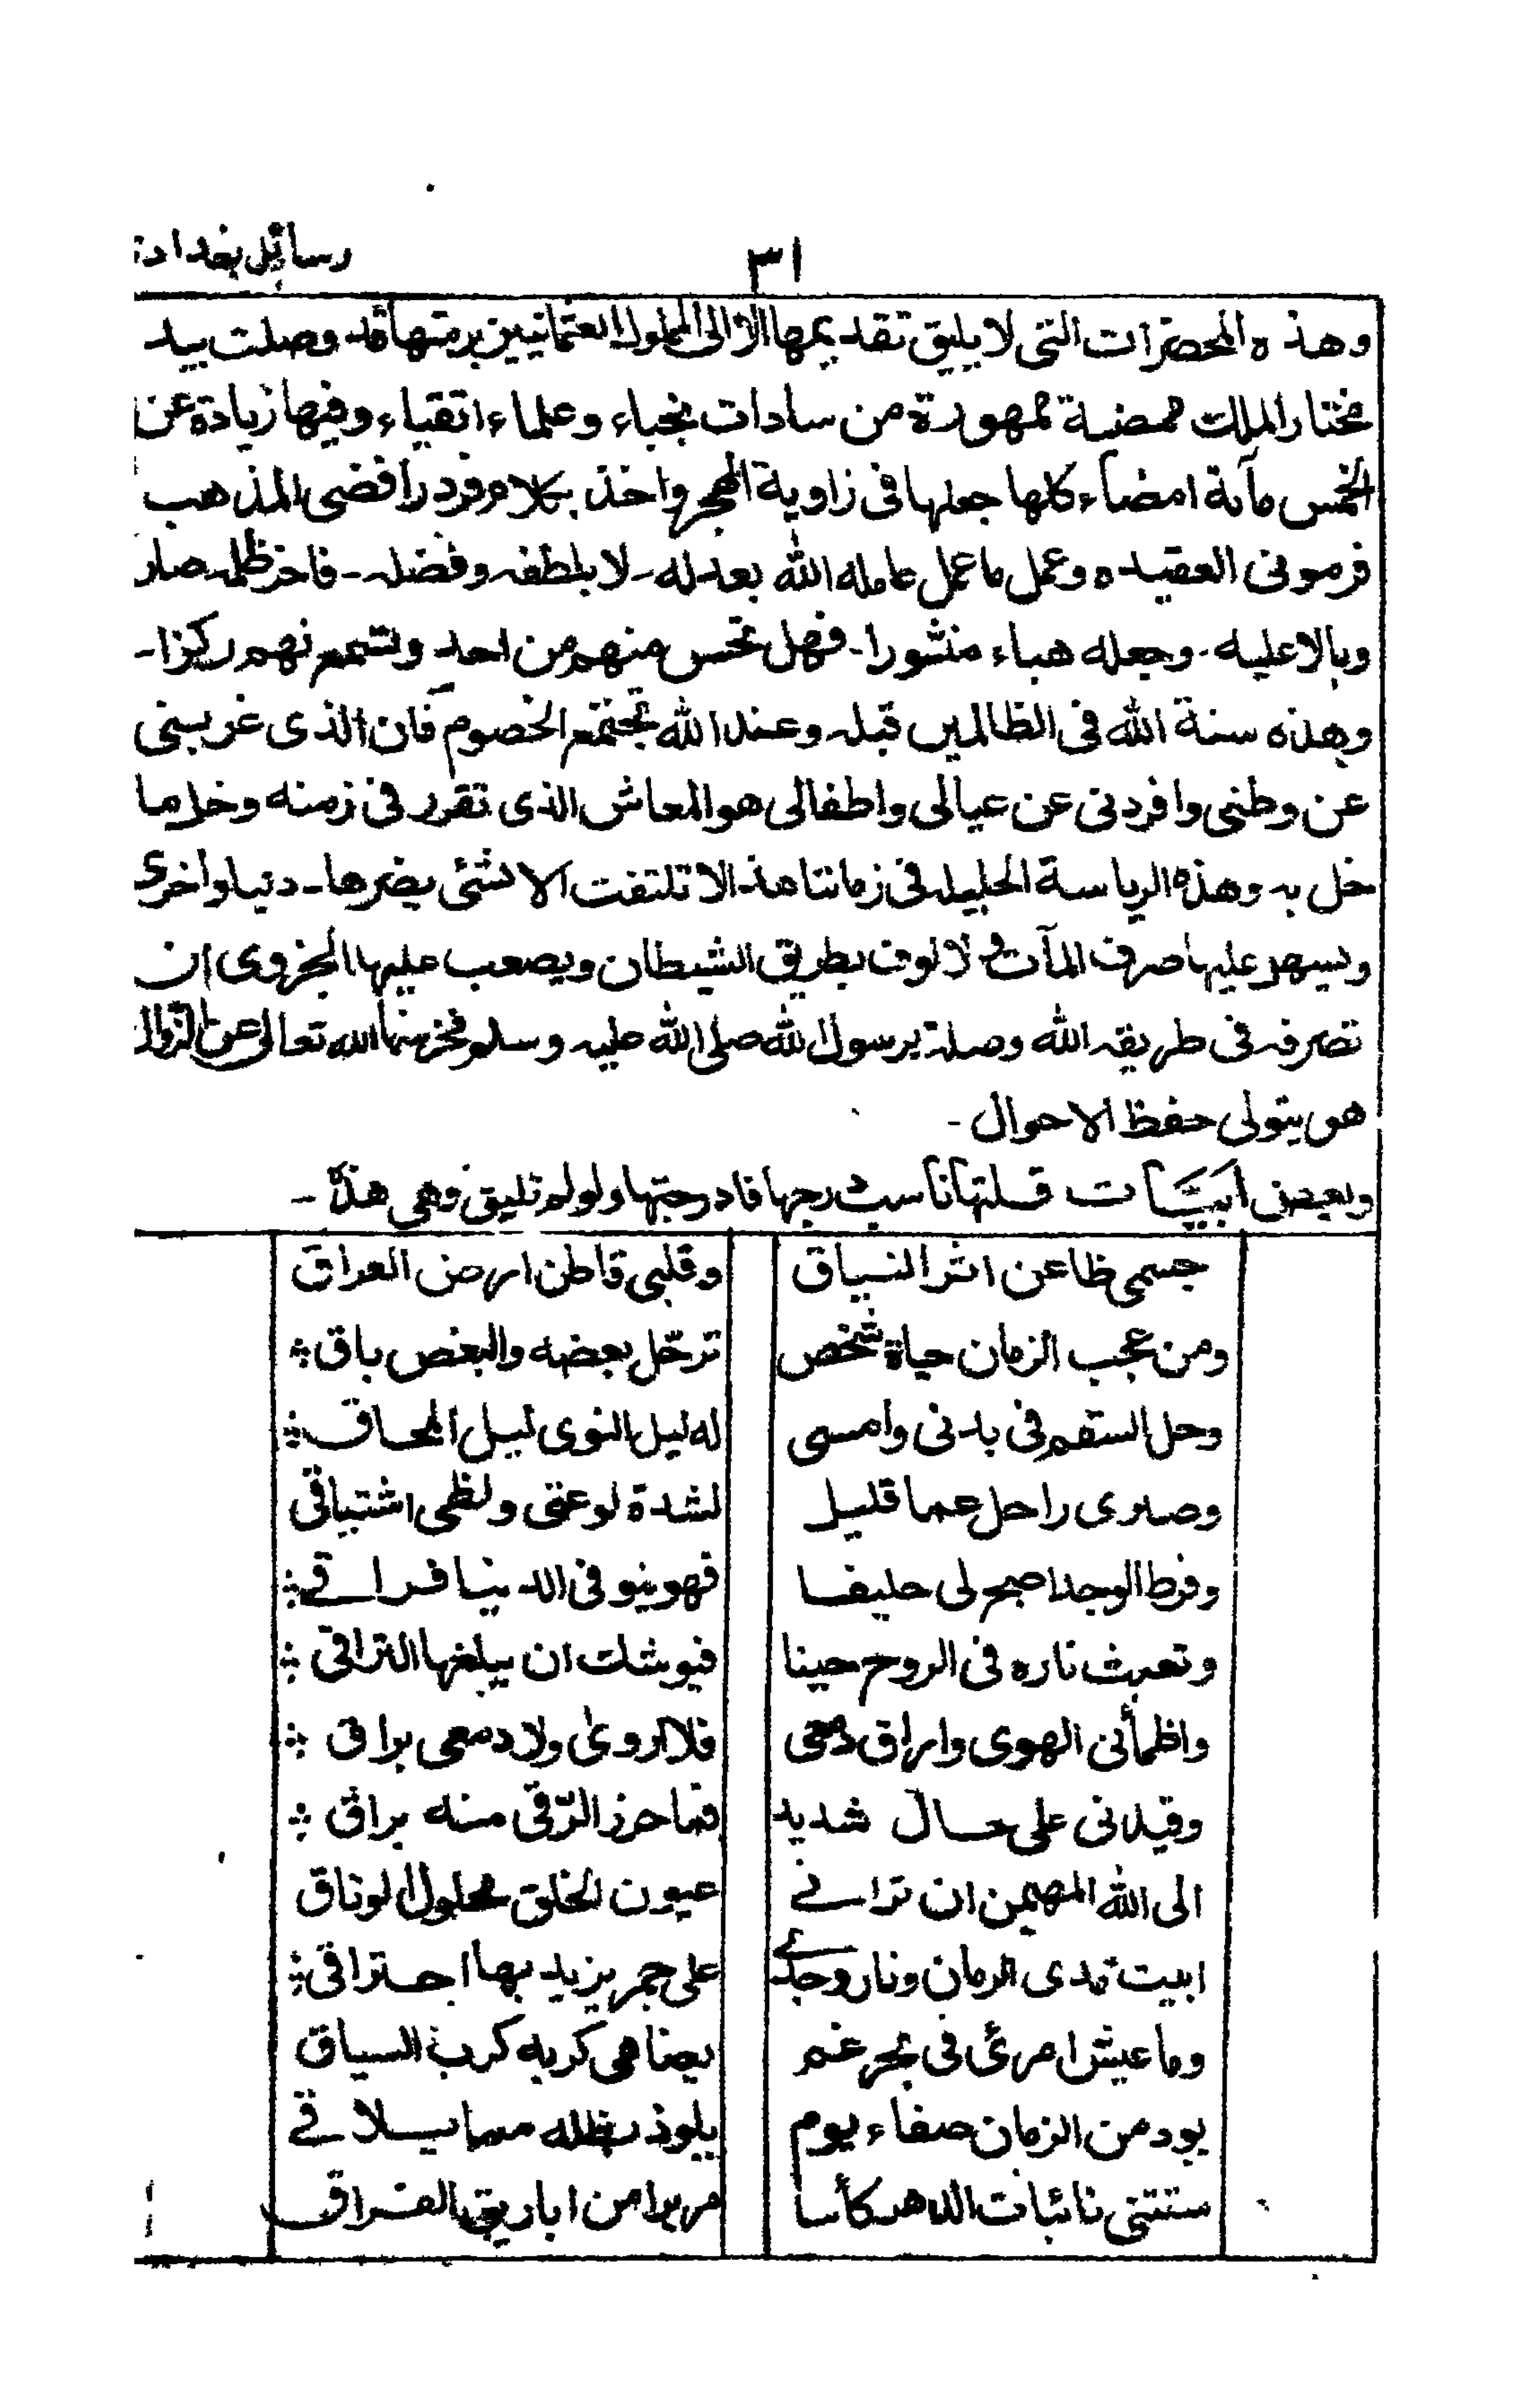 رسائل بغداد
٣١
وهذه المحضرات التى لا يليق تقديمها الا الى الملوك العثمانيين برمتها قد وصلت بيد
مختار الملك ممضية ممهورة من سادات نجباء وعلماء اتقياء وفيها زيادة عن
الخمس مآئة امضاء كلها جعلها فى زاوية الهجر واخذ بكلام فرد رافضى المذهب
فرمونى العقيده وعمل ما عمل عامله الله بعدله - لا بلطفه وفضله - فاخر ظلمه صار
وبالا عليه - وجعله هباء منثورا - فهل تحس منهم من احد وتسمع لهم ركزا -
وهذه سنة الله فى الظالمين قبله وعند الله تجتمع الخصوم فان الذى غربنى
عن وطنى وافردنى عن عيالى واطفالى هو المعاش الذى تقرر فى زمنه وخل ما
خل به وهذه الرياسة الجليله فى زماننا هذا لا تلتفت الا لشئ يضرها - دنيا واخرى
ويسهل عليها صرف المآت والالوف بطريق الشيطان ويصعب عليها الجزوى ان
تصرفه فى طريقه الله وصلة برسول الله صلى الله عليه وسلم الله تعالى عن الزوال
هو يتولى حفظ الاحوال -
وبعض ابيات قلتها ناسب درجها فادرجتها ولو لم تليق وهى هذه -
جسمى ظاعن اثر النياق وقلبى قاطن ارض العراق
ومن عجب الزمان حياة شخص ترحّل بعضه والبعض باق
وحل السقم فى بدنى وامسى له ليل النوى ليل المحاق
وصبرى راحل عما قليل لشدة لوعتى ولظى اشتياقى
وفرط الوجد اصبح لى حليفا فهوينو فى الدنيا فراقے
وتعبث ناره فى الروح حينا فيوشك ان يبلغها التراقى
واظمأنى الهوى واراق دمعى فلا اروىٰ ولا دمعى براق
وقيدنى على حال شديد فما حرز الرّقى منه براق
الى الله المهيمن ان ترانے عيون الخلق محلول الوثاق
ابيت مدى الزمان ونار وجدے على جمر يزيد بها احتراقى
وما عيش امرئ فى بحر غم يضاهى كربه كرب السياق
يود من الزمان صفاء يوم يلوذ بظله مما يلاقے
سقتنى نائبات الدهر كأسا مريرا من اباريق الفراق